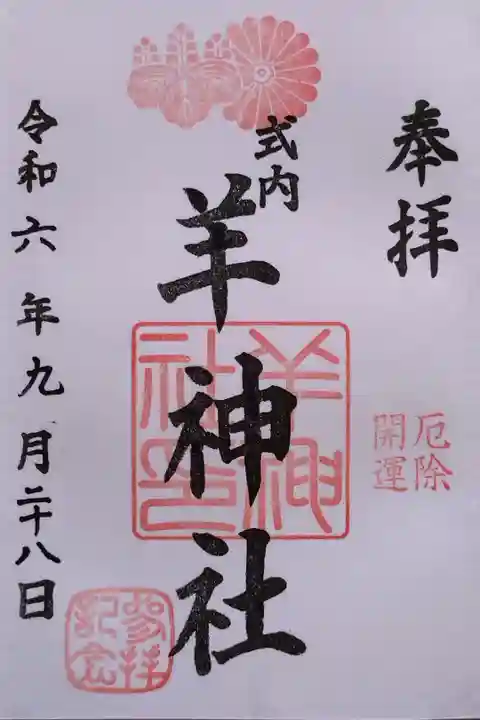 奉拝
厄除
開運
式内
羊神社
羊神社印
令和六年九月二十八日
参拝記念